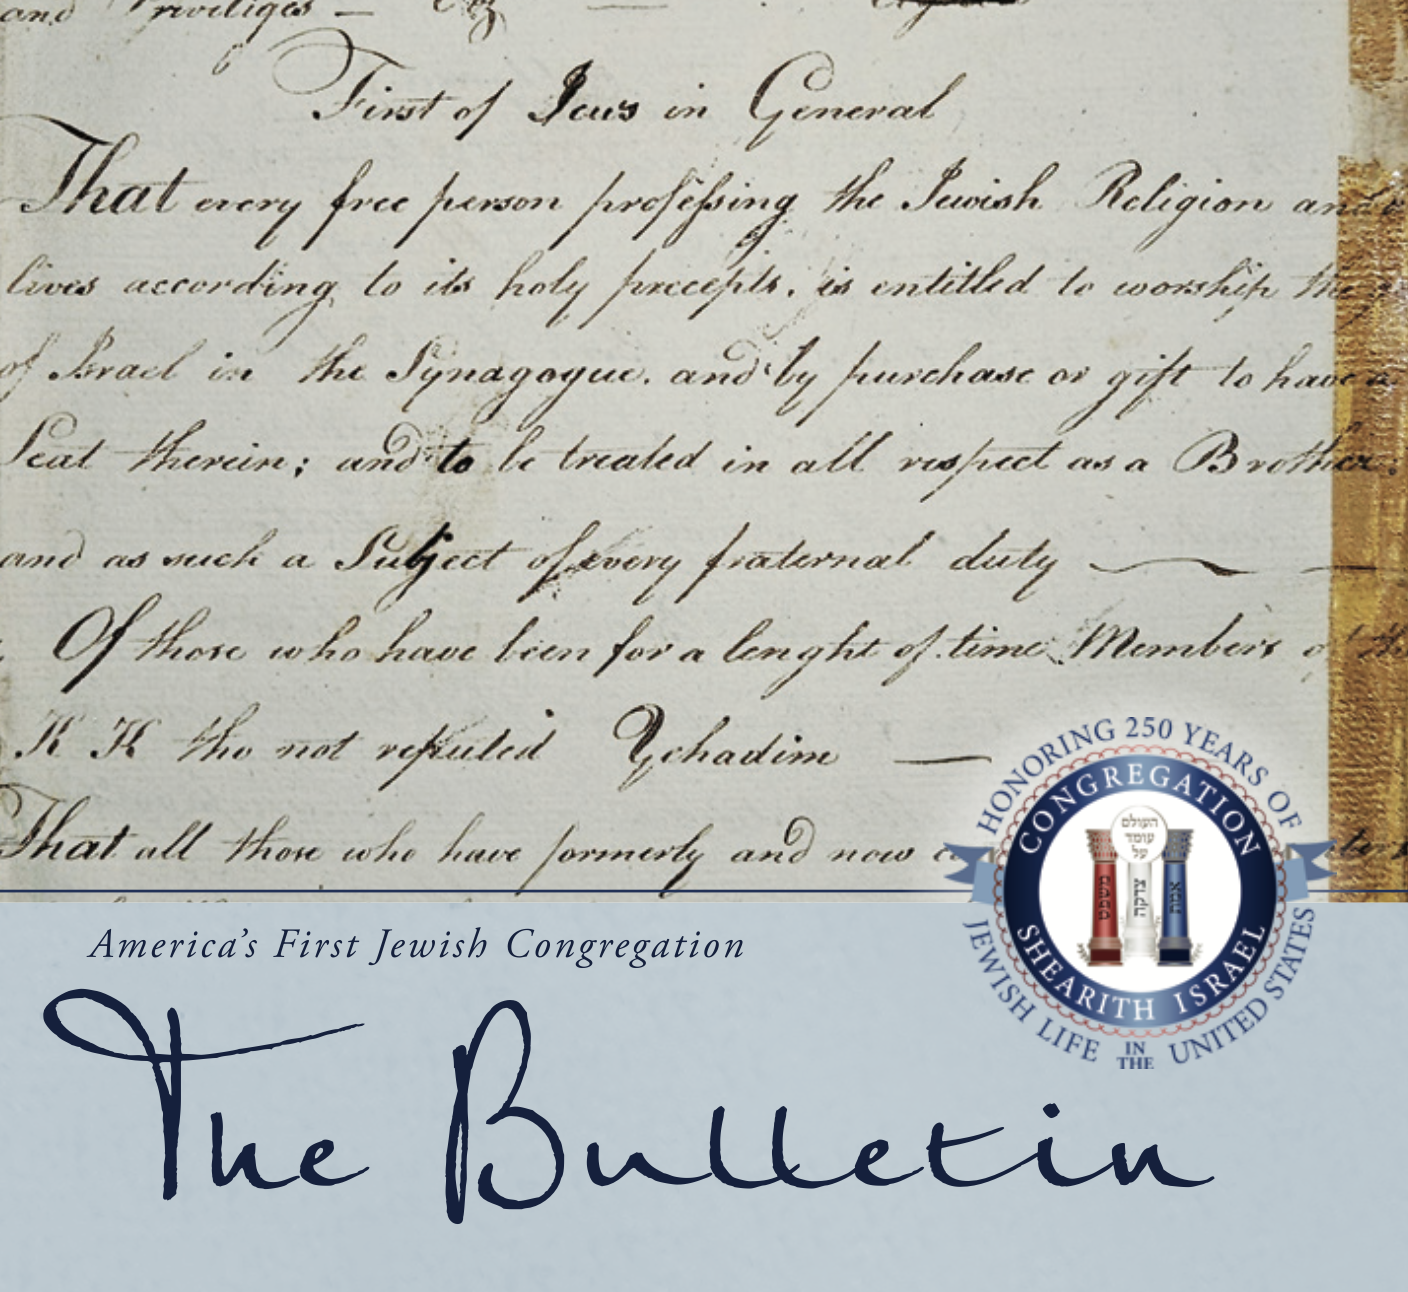 and Priviliges —
First of Jews in General
That every free person professing the Jewish Religion and
lives according to its holy precepts. is entitled to worship the
of Israel in the Synagogue. and by purchase or gift to have a
Seat therein; and to be treated in all respect as a Brother.
and as such a Subject of every fraternal duty —
Of those who have been for a lenght of time Members of the
K K tho not reputed Yehadim —
That all those who have formerly and now
HONORING 250 YEARS OF
CONGREGATION
העולם
עומד
על
משפט
צדקה
אמת
SHEARITH ISRAEL
JEWISH LIFE IN THE UNITED STATES
America's First Jewish Congregation
The Bulletin